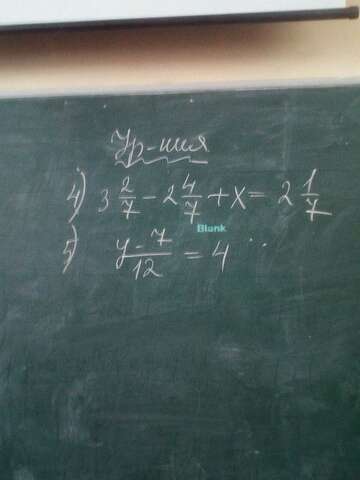 Ур-ния
4) 3 2/7 - 2 4/7 + x = 2 1/7
Blank
5) y-7/12 = 4